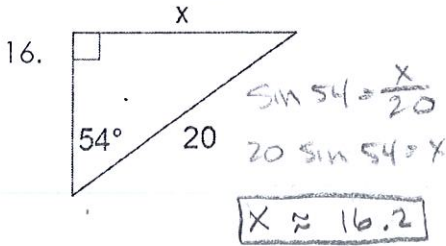 x
16.
54°
20
sin 54 = x/20
20 sin 54 = x
x ≈ 16.2